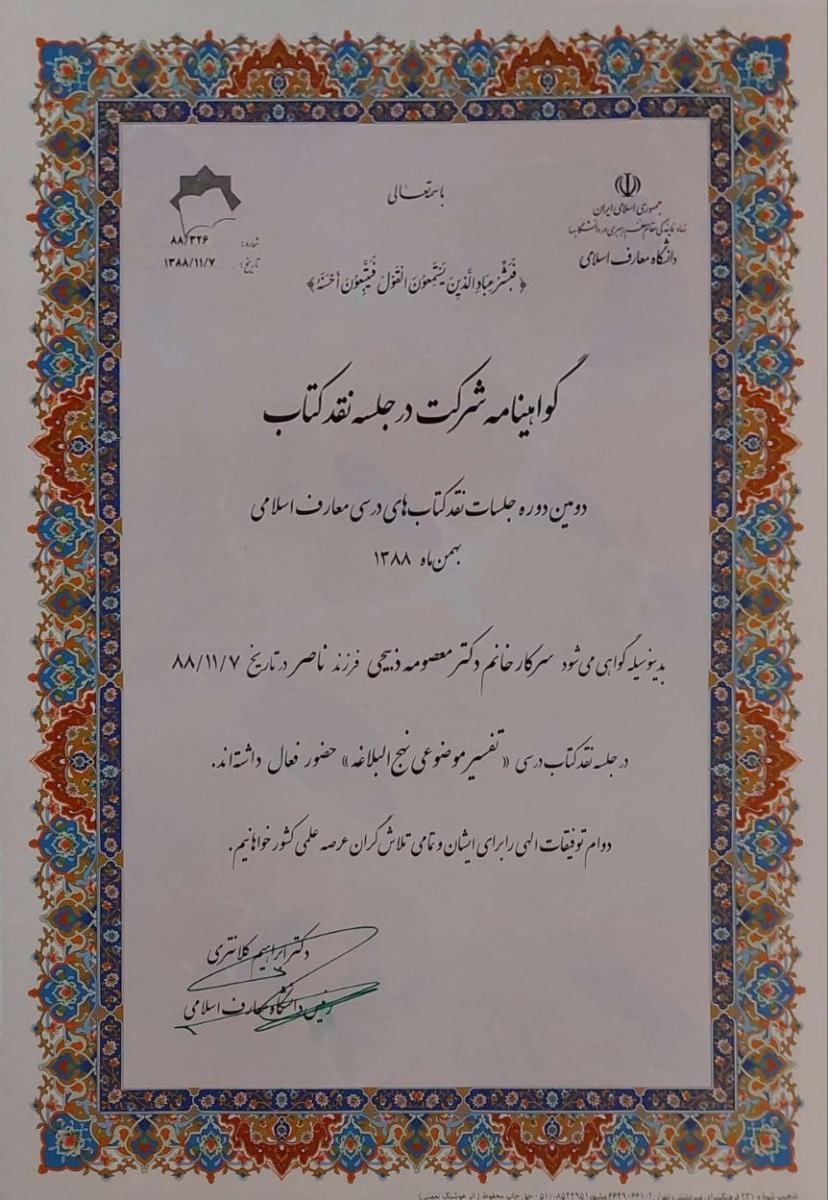 باسمه‌تعالی
جمهوری اسلامی ایران
نهاد نمایندگی مقام معظم رهبری در دانشگاهها
دانشگاه معارف اسلامی
شماره: ۸۸/۳۲۶
تاریخ: ۱۳۸۸/۱۱/۷
﴿فَبَشِّرْ عِبَادِ الَّذِینَ یَسْتَمِعُونَ الْقَوْلَ فَیَتَّبِعُونَ أَحْسَنَهُ﴾
گواهینامه شرکت در جلسه نقد کتاب
دومین دوره جلسات نقد کتاب‌های درسی معارف اسلامی
بهمن ماه ۱۳۸۸
بدینوسیله گواهی می‌شود سرکار خانم دکتر معصومه ذبیحی فرزند ناصر در تاریخ ۸۸/۱۱/۷
در جلسه نقد کتاب درسی «تفسیر موضوعی نهج البلاغه» حضور فعال داشته‌اند.
دوام توفیقات الهی را برای ایشان و تمامی تلاش‌گران عرصه علمی کشور خواهانیم.
دکتر ابراهیم کلانتری
رئیس دانشگاه معارف اسلامی
حق چاپ محفوظ (اثر هوشنگ نعمتی)